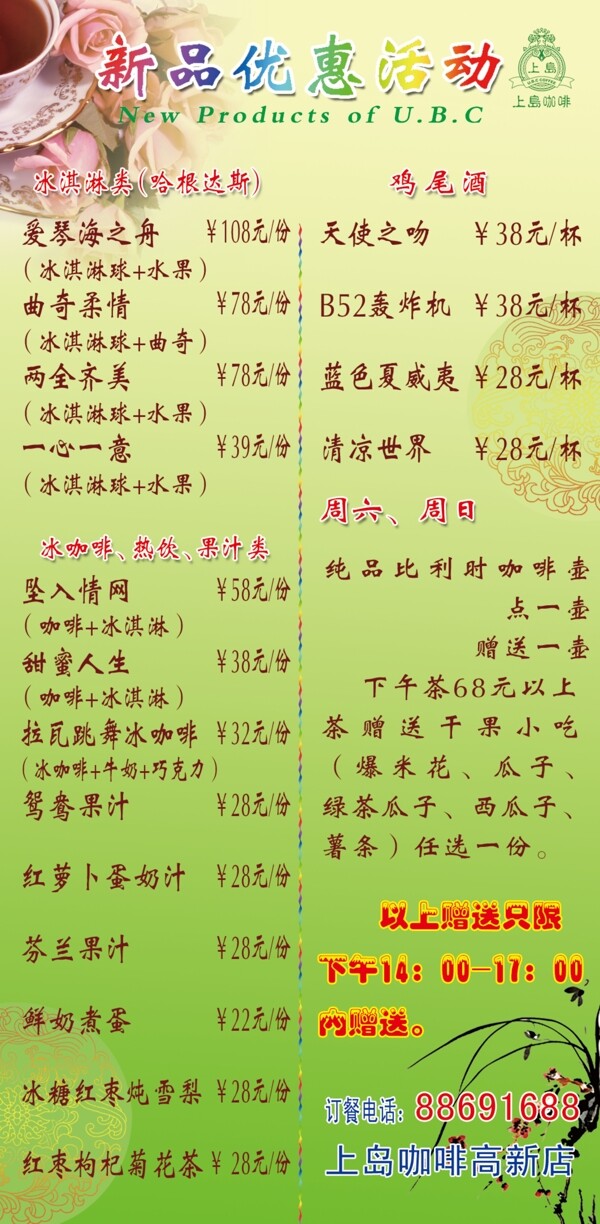 新品优惠活动
New Products of U.B.C
上島
U.B.C COFFEE
上島咖啡
冰淇淋类(哈根达斯)
爱琴海之舟 ¥108元/份
(冰淇淋球+水果)
曲奇柔情 ¥78元/份
(冰淇淋球+曲奇)
两全齐美 ¥78元/份
(冰淇淋球+水果)
一心一意 ¥39元/份
(冰淇淋球+水果)
冰咖啡、热饮、果汁类
坠入情网 ¥58元/份
(咖啡+冰淇淋)
甜蜜人生 ¥38元/份
(咖啡+冰淇淋)
拉瓦跳舞冰咖啡 ¥32元/份
(冰咖啡+牛奶+巧克力)
鸳鸯果汁 ¥28元/份
红萝卜蛋奶汁 ¥28元/份
芬兰果汁 ¥28元/份
鲜奶煮蛋 ¥22元/份
冰糖红枣炖雪梨 ¥28元/份
红枣枸杞菊花茶 ¥28元/份
鸡尾酒
天使之吻 ¥38元/杯
B52轰炸机 ¥38元/杯
蓝色夏威夷 ¥28元/杯
清凉世界 ¥28元/杯
周六、周日
纯品比利时咖啡壶
点一壶
赠送一壶
下午茶68元以上
茶赠送干果小吃
(爆米花、瓜子、
绿茶瓜子、西瓜子、
薯条)任选一份。
以上赠送只限
下午14：00-17：00
内赠送。
订餐电话：88691688
上岛咖啡高新店